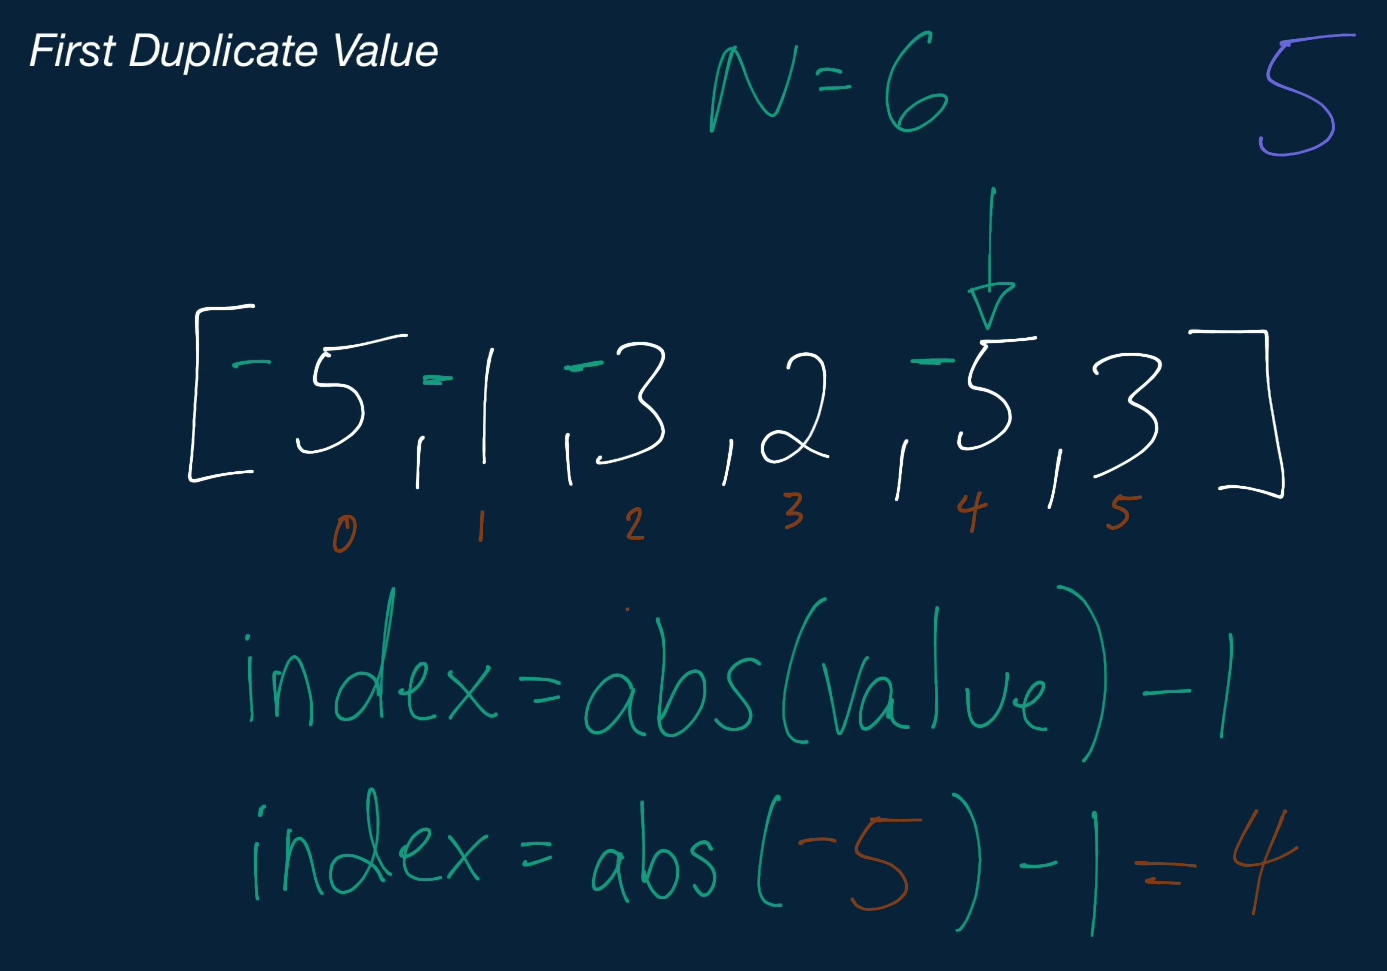 First Duplicate Value
N=6
5
[-5,-1,-3,2,-5,3]
0 1 2 3 4 5
index=abs(value)-1
index=abs(-5)-1=4